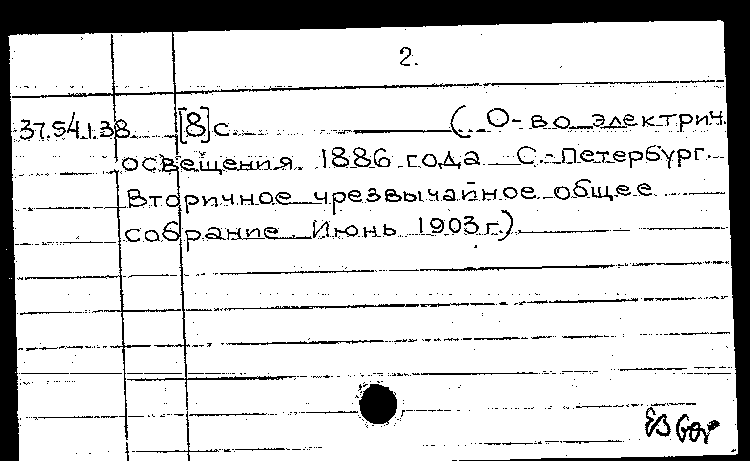 2.
37.54.1.38. [8]с. (О-во электрич.
освещения 1886 года С.-Петербург.
Вторичное чрезвычайное общее
собрание. Июнь 1903 г.).